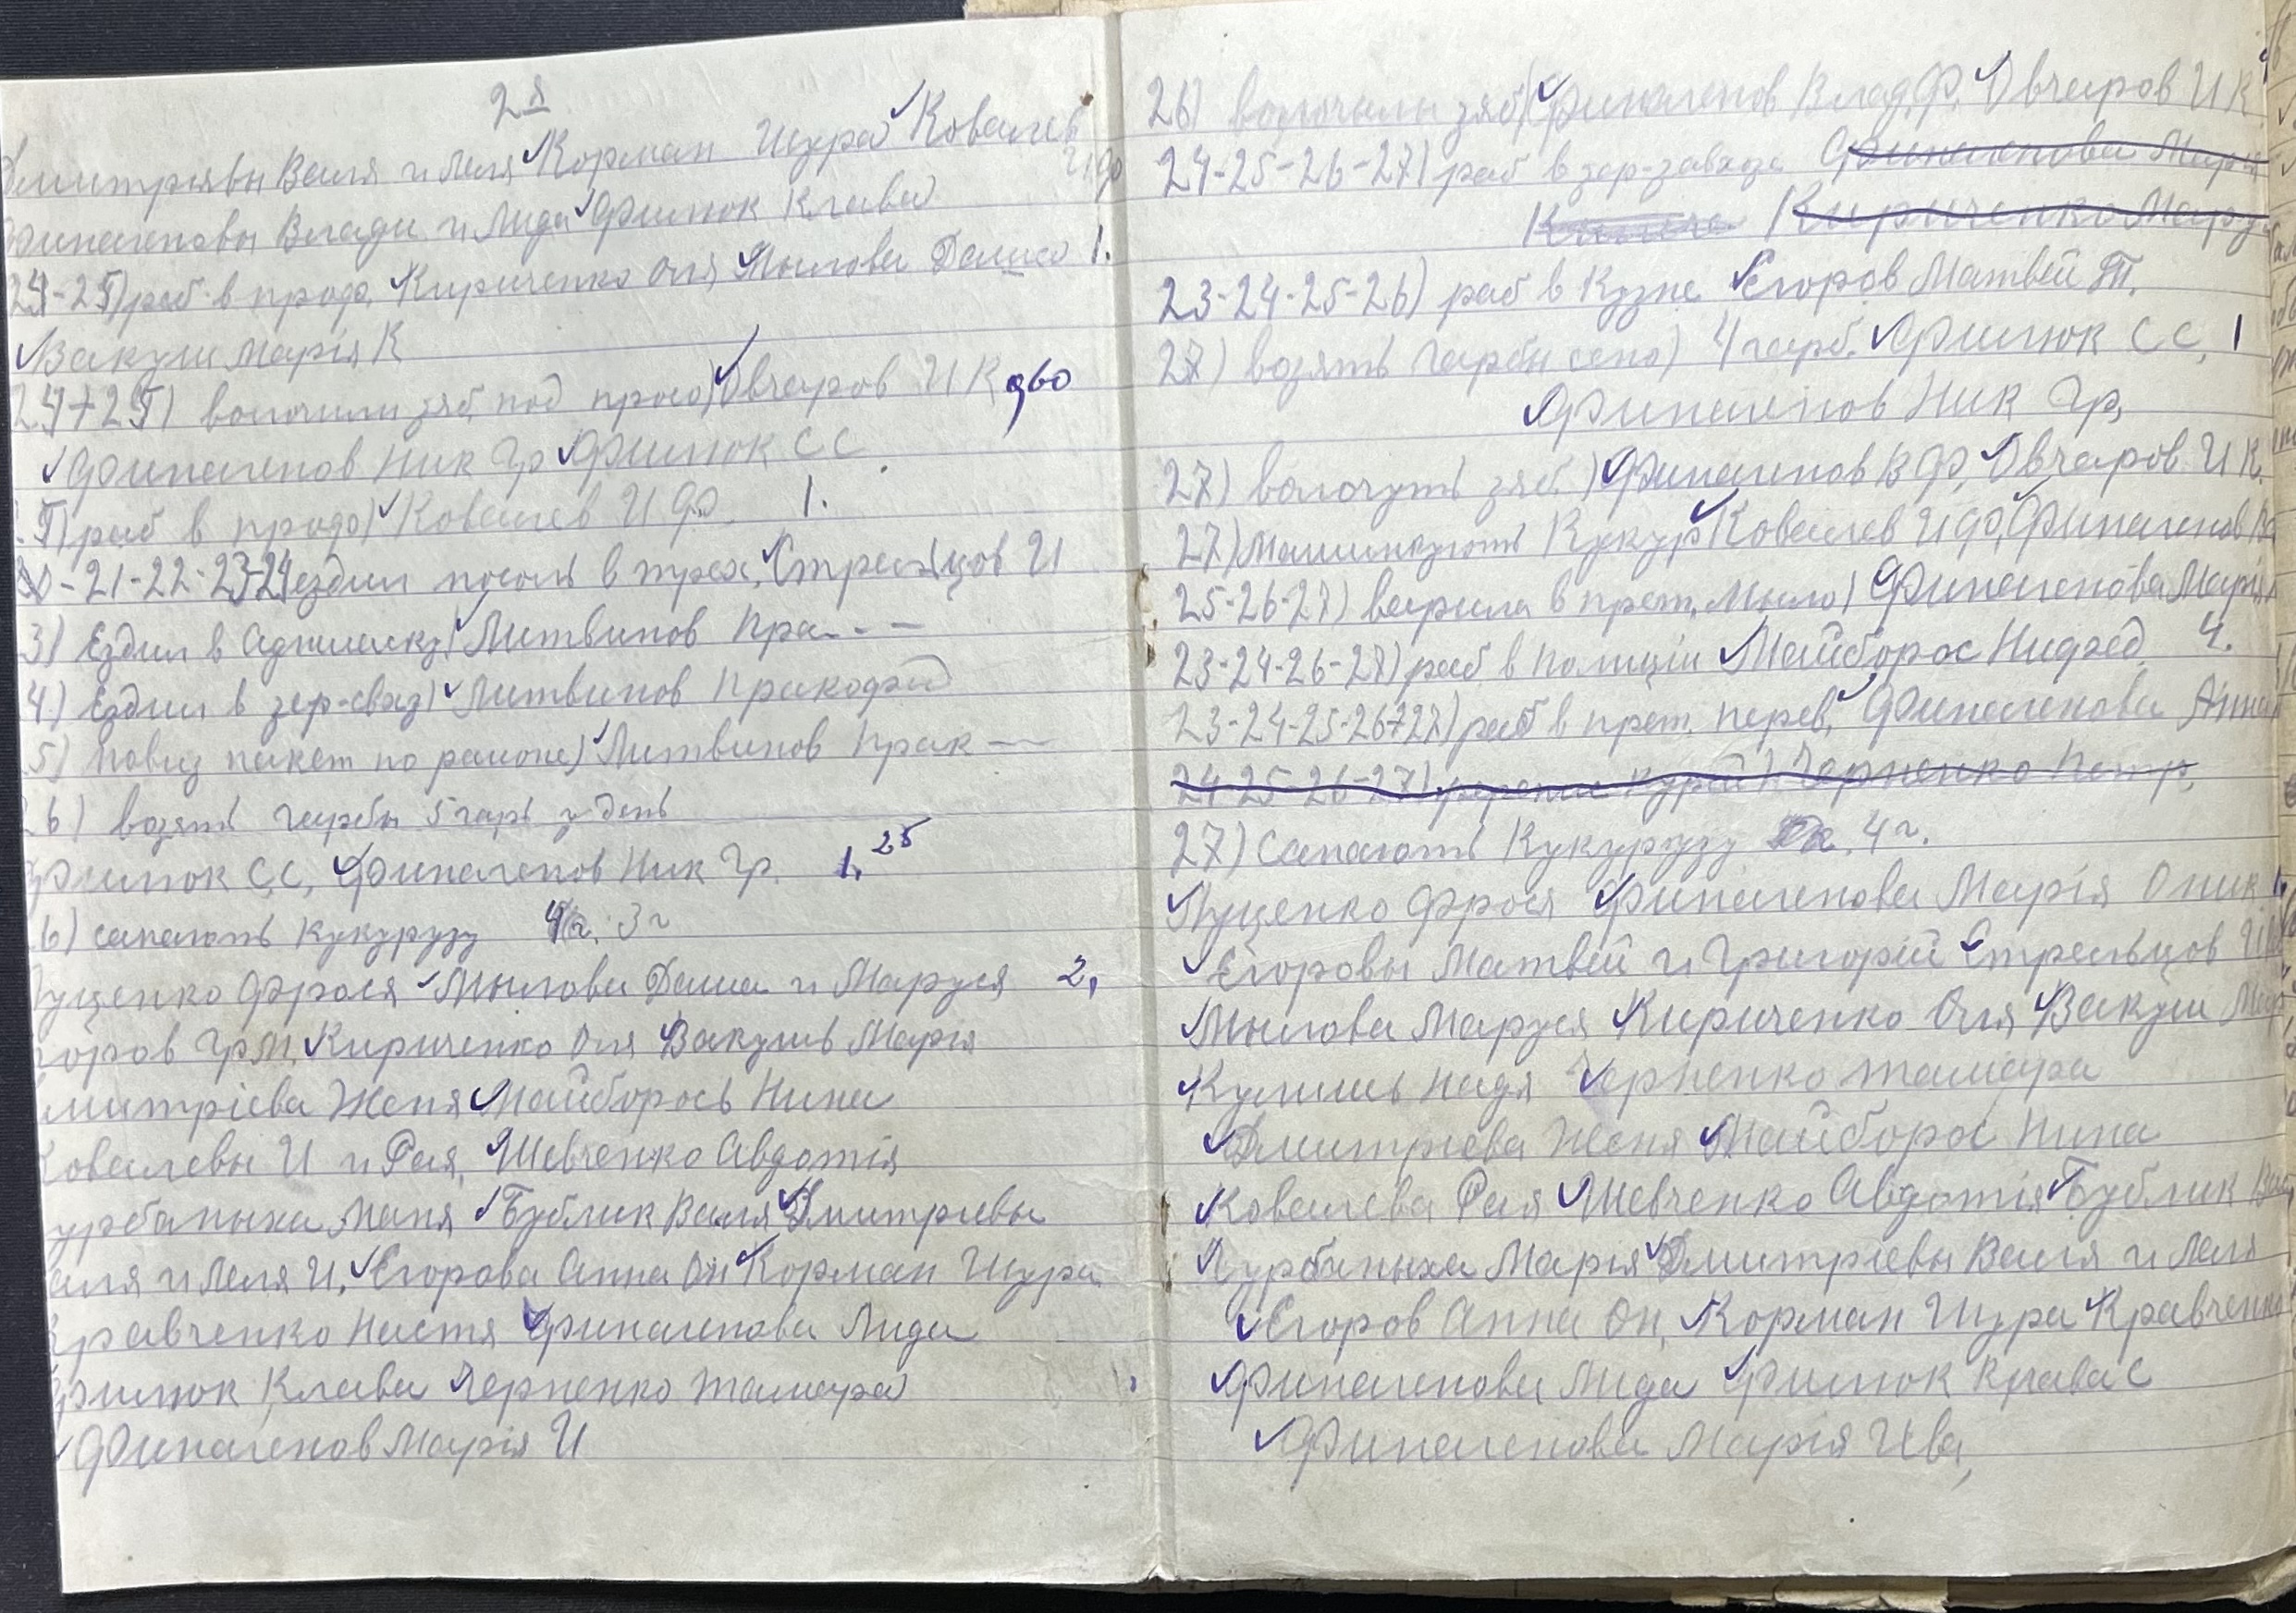 2я
Дмитрiевы Валя и Леля Корман Шура Ковалев
И Ф
Финагеновы Влади и Лида Филюк Клава
24-25) раб. в проф. Кириченко Оля Мылова Даша 1.
Вакуш Марiя К
24+25) волочили зяб. под просо) Овчаров И К 960
Финагенов Ник Гр Филюк С С
раб в продо) Ковалев И Ф. 1.
-21-22-23-24 ездил посоль в Стрельцов И
3) Ездил в Литвинов Пра---
4) Ездил в зер-сваз) Литвинов Пракофiй
5) повиз пакет по районе) Литвинов Прак --
26) возять гарбы 5 гарь у день
Филюк С,С, Финагенов Ник Гр. 1,25
6) сапають кукурузу 3 г
Луценко Фрося Мылова Даша и Маруся 2,
горов Гр М, Кириченко Оля Вакушь Марiя
митрiева Женя Майборось Нина
Ковалевы И и Рая, Шевченко Авдотiя
урбаныха Маня Бублик Валя Дмитриевы
аля и Леля И, Егорова Анна Он Корман Шура
Кравченко Настя Финагенова Лида
Филюк Клава Черненко Тамара
Финагенов Марiя И
26) волочили зяб) Финагенов Влад,Ф, Овчаров И К
24-25-26-27) раб в зер-завхозе Финагенова Марiя
Кириченко Мару
23-24-25-26) раб в Кузне Егоров Матвей Т,
27) возять гарбы сено) 4 гарб. Филюк С С, 1
Финагенов Ник Гр,
27) волочуть зяб.) Финагенов В Ф, Овчаров И К.
27) Машинкують Кукур Ковалев И Ф, Финагенов В
25-26-27) варила в прет. Мыло) Финагенова Марiя
23-24-26-27) раб в полицiи Майборос Нифед 4.
23-24-25-26+27) раб в прет. перев, Финагенова Анна
24-25-26-27) Курей) Черненко Петр,
27) Сапають Кукурузу 4 г.
Луценко Фрося Финагенова Марiя Оник
Егоровы Матвей и Григорiй Стрельцов И
Мылова Маруся Кириченко Оля Вакуш Ма
Кулишь Надя Черненко Тамара
Дмитрiева Женя Майборос Нина
Ковалева Рая Шевченко Авдотiя Бублик Ва
Курбаныха Марiя Дмитрiевы Валя и Леля
Егоров Анна Он, Корман Шура Кравченко
Финагенова Лида Филюк Клава С
Финагенова Марiя Ива,